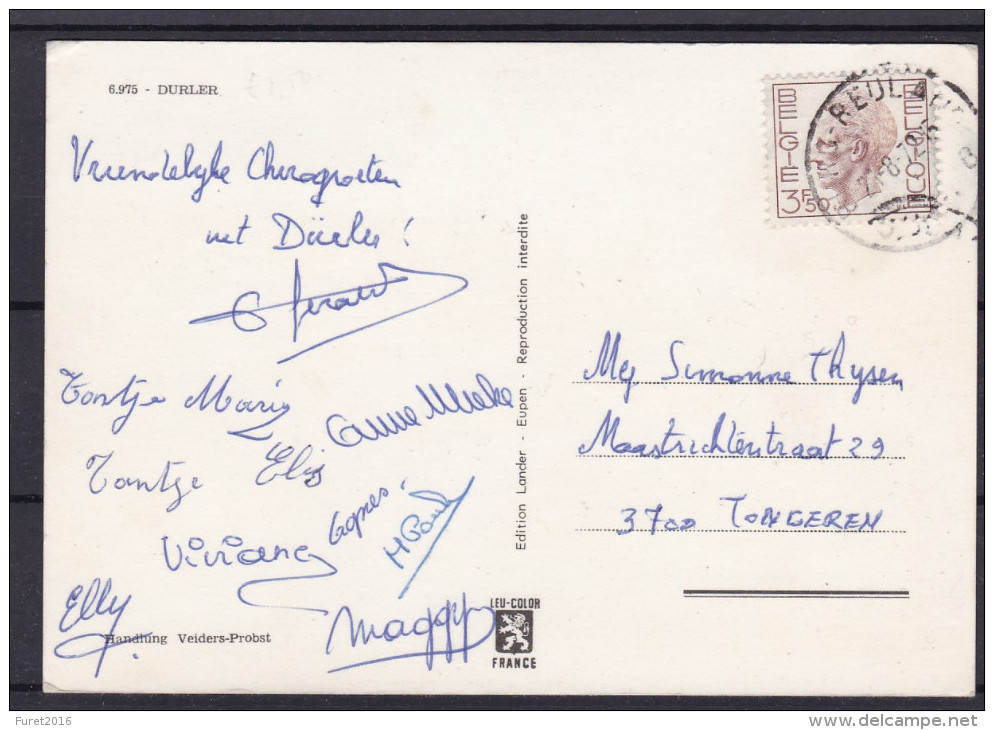 6.975 - DURLER
BELGIE
BELGIQUE
3F50
Vriendelijke Chirogroeten
uit Dürler!
Gerard
Tantje Maria
Anne Mieke
Tantje Elis
Viviane
Agnes
Elly
Maggy
Handlung Veiders-Probst
LEU-COLOR
FRANCE
Edition Lander - Eupen - Reproduction interdite
Mej Simonne Thysen
Maastrichterstraat 29
3700 TONGEREN
Furet2016
delcampe.net